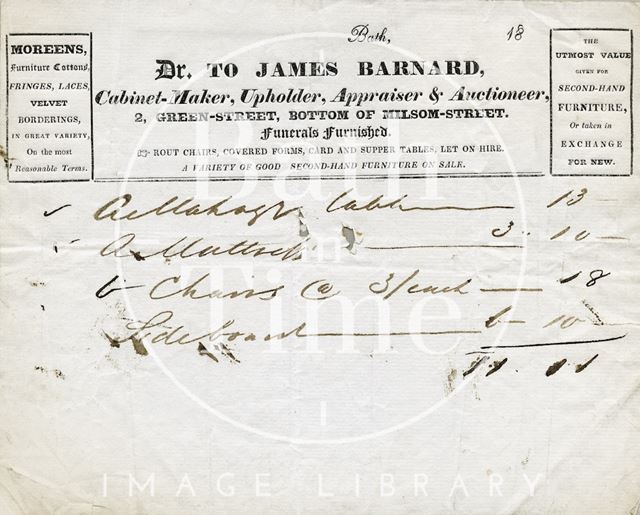 Bath, 18
MOREENS,
Furniture Cottons,
FRINGES, LACES,
VELVET
BORDERINGS,
IN GREAT VARIETY,
On the most
Reasonable Terms.
Dr. TO JAMES BARNARD,
Cabinet-Maker, Upholder, Appraiser & Auctioneer,
2, GREEN-STREET, BOTTOM OF MILSOM-STREET.
Funerals Furnished.
☞ ROUT CHAIRS, COVERED FORMS, CARD AND SUPPER TABLES, LET ON HIRE.
A VARIETY OF GOOD SECOND-HAND FURNITURE ON SALE.
THE
UTMOST VALUE
GIVEN FOR
SECOND-HAND
FURNITURE,
Or taken in
EXCHANGE
FOR NEW.
A Mahogy table 13
A Mattress 3 . 10 -
6 Chairs @ 3/ each 18
Sideboard 6 - 10 -
11 . 11
Bath
in
Time
IMAGE LIBRARY